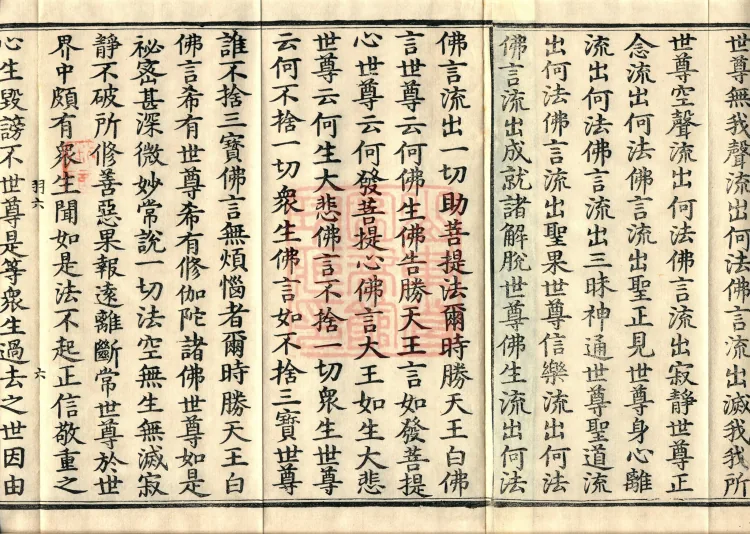 世尊無我聲流出何法佛言流出滅我我所
世尊空聲流出何法佛言流出寂靜世尊正
念流出何法佛言流出聖正見世尊身心離
流出何法佛言流出三昧神通世尊聖道流
出何法佛言流出聖果世尊信樂流出何法
佛言流出成就諸解脫世尊佛生流出何法
佛言流出一切助菩提法爾時勝天王白佛
言世尊云何佛生佛告勝天王言如發菩提
心世尊云何發菩提心佛言大王如生大悲
世尊云何生大悲佛言不捨一切衆生世尊
云何不捨一切衆生佛言如不捨三寶世尊
誰不捨三寶佛言無煩惱者爾時勝天王白
佛言希有世尊希有修伽陀諸佛世尊如是
祕密甚深微妙常說一切法空無生無滅寂
靜不破所修善惡果報遠離斷常世尊於世
界中頗有衆生聞如是法不起正信敬重之
羽六
六
心生毀謗不世尊是等衆生過去之世因由